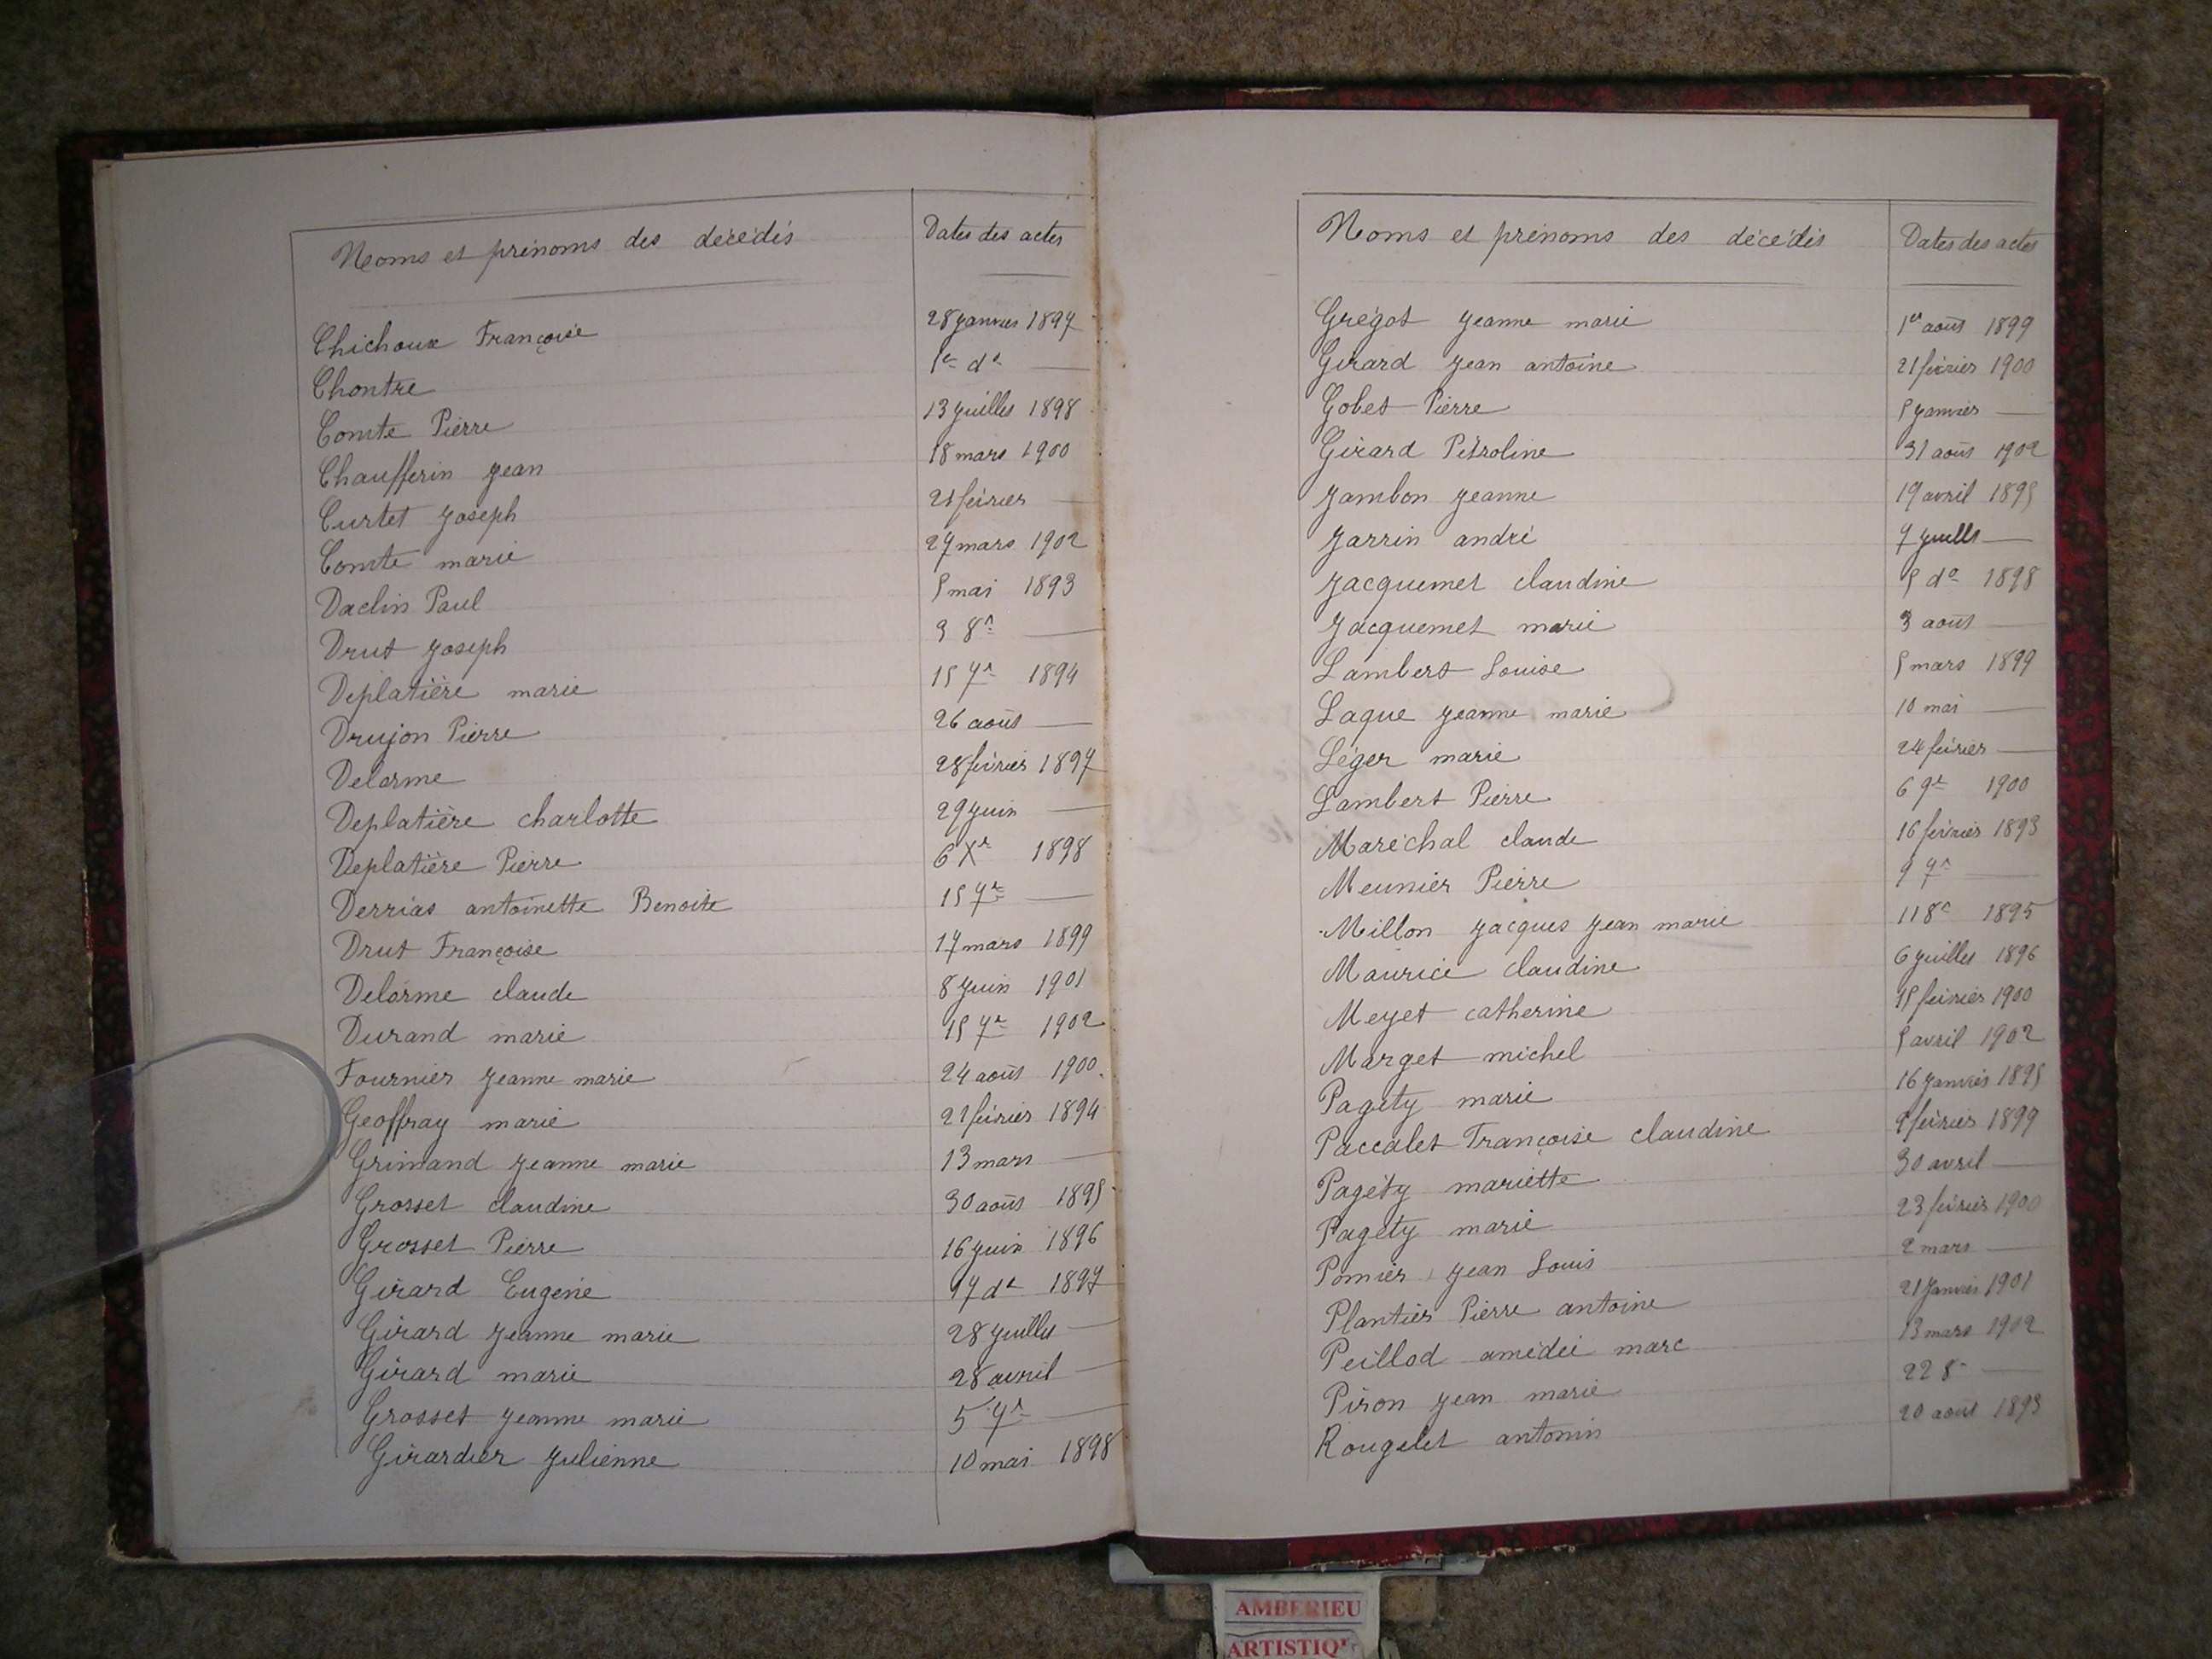 Noms et prénoms des décédés Dates des actes
Chichoux Françoise 28 janvier 1897
Chontre 1er do —
Comte Pierre 13 juillet 1898
Chaufferin Jean 18 mars 1900
Curtet Joseph 21 février —
Comte marie 27 mars 1902
Daclin Paul 5 mai 1893
Drut Joseph 3 8re —
Deplatière marie 15 7re 1894
Drujon Pierre 26 août —
Delorme 28 février 1897
Deplatière charlotte 29 juin —
Deplatière Pierre 6 Xre 1898
Derrias antoinette Benoite 15 7re —
Drut Françoise 17 mars 1899
Delorme claude 8 juin 1901
Durand marie 15 7re 1902
Fournier Jeanne marie 24 août 1900.
Geoffray marie 21 février 1894
Grimand Jeanne marie 13 mars —
Grosset claudine 30 août 1895
Grosset Pierre 16 juin 1896
Girard Eugénie 17 do 1897
Girard Jeanne marie 28 juillet —
Girard marie 28 avril —
Grosset Jeanne marie 5 7re —
Girardier Julienne 10 mai 1898
Noms et prénoms des décédés Dates des actes
Grégot Jeanne marie 1er août 1899
Girard Jean antoine 21 février 1900
Gobet Pierre 5 janvier —
Girard Pétroline 31 août 1902
Jambon Jeanne 19 avril 1895
Jarrin andré 7 juillet —
Jacquemet claudine 5 do 1898
Jacquemet marie 3 août —
Lambert Louise 5 mars 1899
Laque Jeanne marie 10 mai —
Léger marie 24 février —
Lambert Pierre 6 9re 1900
Maréchal claude 16 février 1893
Meunier Pierre 9 7re —
Millon Jacques Jean marie 11 8re 1895
Maurice claudine 6 juillet 1896
Meyet catherine 15 février 1900
Marget michel 5 avril 1902
Pagéty marie 16 janvier 1895
Paccalet Françoise claudine février 1899
Pagéty mariette 30 avril —
Pagéty marie 23 février 1900
Pomier Jean Louis 2 mars —
Plantier Pierre antoine 21 janvier 1901
Peillod amédée marc 13 mars 1902
Piron Jean marie 22 8re —
Rougelet antonin 20 août 1893
AMBERIEU
ARTISTIQ